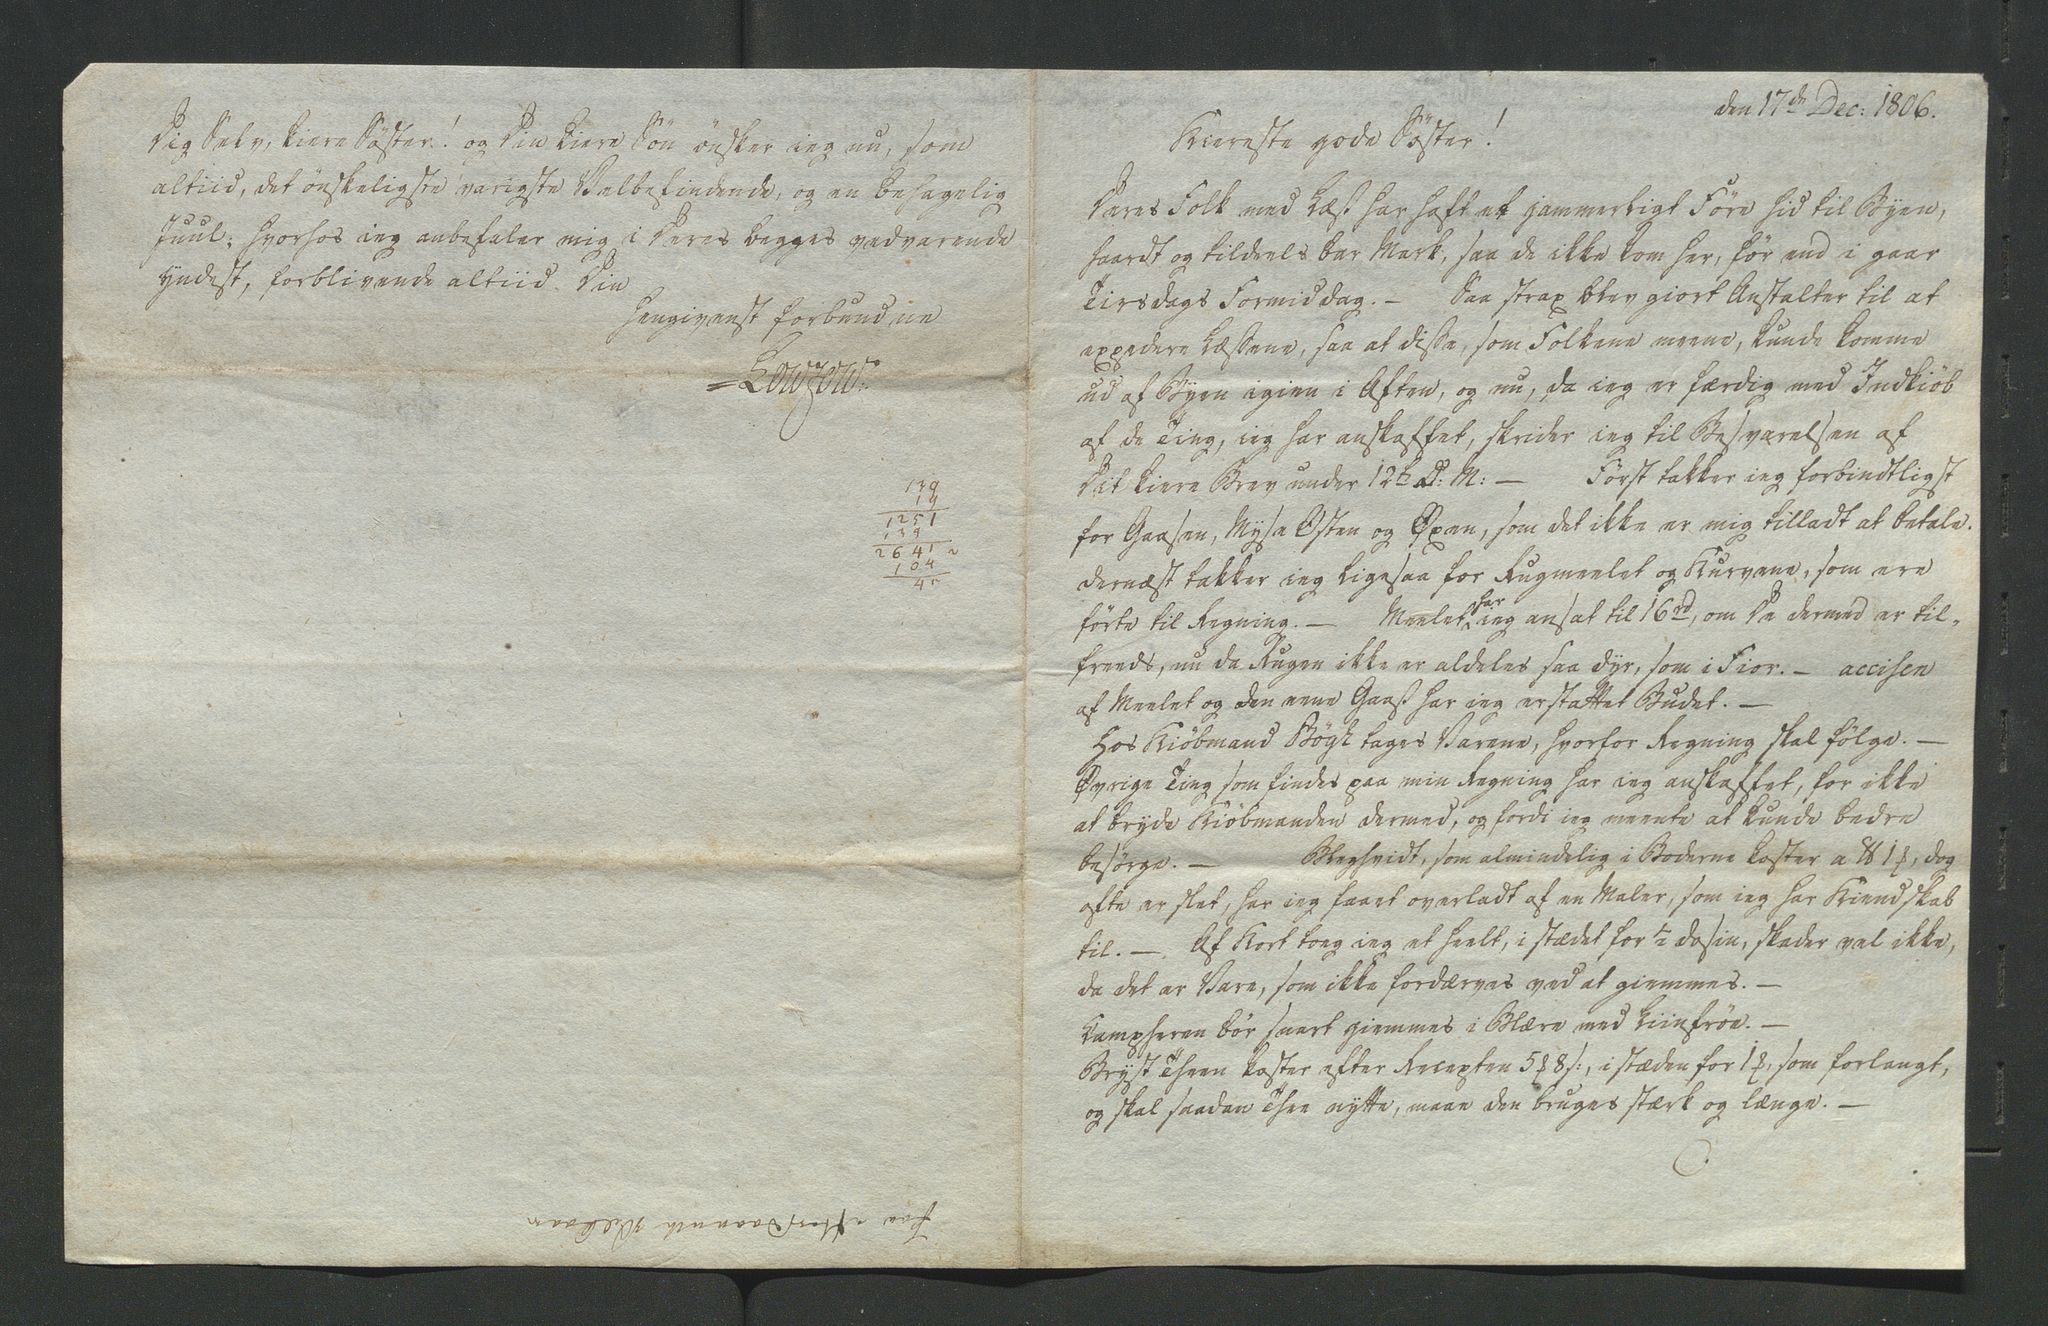 den 17de Dec: 1806.
Kiereste gode Söster!
Deres Folk med Læß har haft et jammerligt Före hid til Byen,
haardt og tildeels bar Mark, saa de ikke kom her, för end i gaar
Tirsdags Formiddag. – Saa strax blev giort Anstalter til at
expedere Læssene, saa at disse, som Folkene meene, kunde komme
ud af Byen igien i Aften, og nu, da ieg er færdig med Indkiöb
af de Ting, ieg har anskaffet, skrider ieg til Besvarelsen af
Dit kiere Brev under 12te D: M: – Först takker ieg forbindtligst
for Gaasen, Mysa Osten og Øxen, som det ikke er mig tilladt at betale.
dernæst takker ieg ligesaa for Rugmeelet og Kurvene, som ere
förte til Regning. – Meelet har ieg ansat til 16 rd, om De dermed er til-
freeds, nu da Rugen ikke er aldeles saa dyr, som i Fior. – accisen
af Meelet og den eene Gaaß har ieg erstattet Budet. –
Hos Kiöbmand Bögh tages Varene, hvorfor Regning skal fölge. –
Øvrige Ting som findes paa min Regning har ieg anskaffet, for ikke
at bryde Kiöbmanden dermed, og fordi ieg meente at kunde bedre
besörge. – Bleghvidt, som almindelig i Boderne koster a ℔ 1 ,dog
ofte er slet, har ieg faaet overladt af en Maler, som ieg har Kiendskab
til. – Af Kort tog ieg et heelt, i stædet for ½ dosin, skader vel ikke,
da det er Vare, som ikke fordærves ved at giemmes. –
Campheren bör snart giemmes i Blære med Liinfröe. –
Bryst Theen koster efter Recepten 5 8 s:, i stæden for 1 , som forlangt,
og skal saadan Thee nytte, maae den bruges stærk og længe. –
Dig Selv, kiere Söster! og Din kiere Sön önsker ieg nu, som
altiid, det önskeligste varigste Velbefindende, og en behagelig
Juul; hvorhos ieg anbefaler mig i Deres begges vedvarende
Yndest, forblivende altiid Din
hengivenst forbundne
Lowzow.
139
19
1251
139
2641 2
104
4